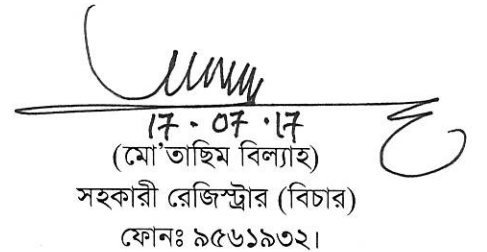 17 - 07 · 17
(মো'তাছিম বিল্যাহ)
সহকারী রেজিস্ট্রার (বিচার)
ফোনঃ ৯৫৬১৯৩২।